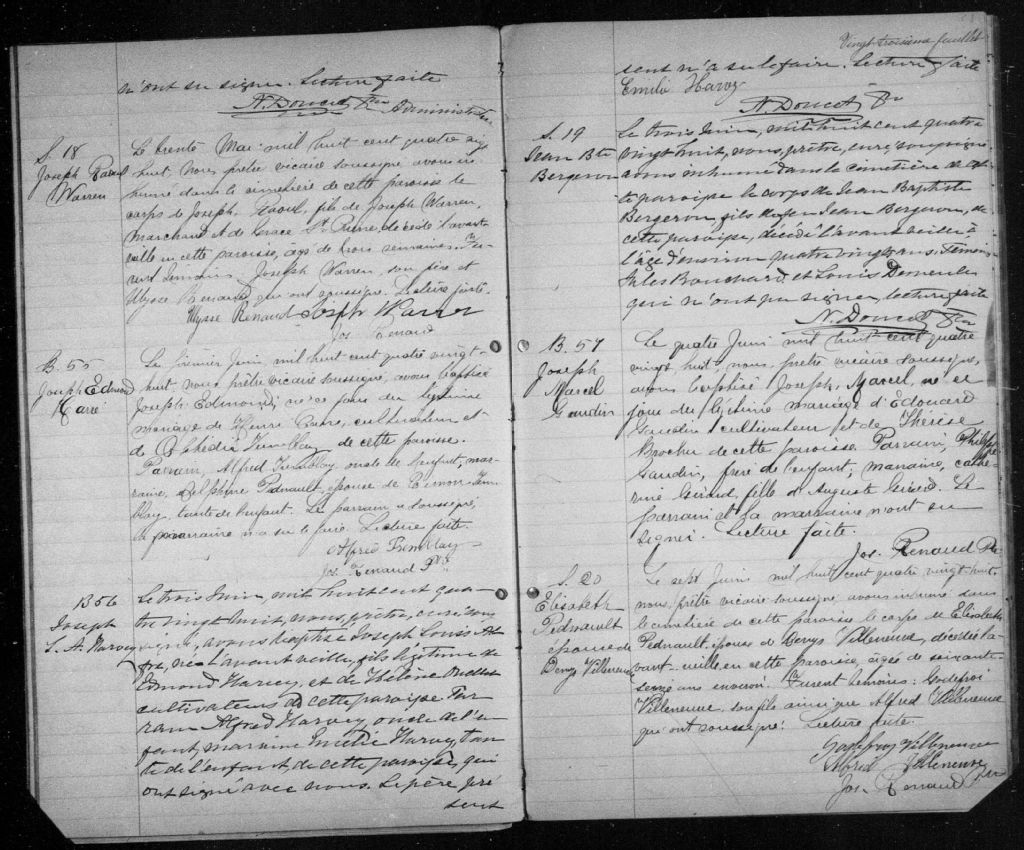 n'ont su signer. Lecture faite
N. Doucet Ptre Administrateur
S. 18
Joseph Raoul
Warren
Le trente Mai mil huit cent quatre vingt
huit. Nous prêtre vicaire soussigné avons in-
humé dans le cimetière de cette paroisse le
corps de Joseph, Raoul, fils de Joseph Warren,
Marchand et de Grace St. Pierre, décédé l'avant
veille en cette paroisse, âgé de trois semaines. Fu-
rent témoins Joseph Warren, son père et
Ulysse Renaud qui ont soussigné. Lecture faite.
Ulysse Renaud Joseph Warren
Jos. Renaud
B. 55
Joseph Edmond
Le premier Juin mil huit cent quatre vingt-
huit nous prêtre vicaire soussigné, avons baptisé
Joseph Edmond, né ce jour du légitime
mariage de Henri, cultivateur et
de Tremblay de cette paroisse.
Parrain, Alfred Tremblay oncle de l'enfant, mar-
raine, Delphine Pednault épouse de Trem-
blay, tante de l'enfant. Le parrain a soussigné,
la marraine n'a su le faire. Lecture faite.
Alfred Tremblay
Jos. Renaud Ptre
B 56
Joseph
L. A. Harvey
Le trois Juin, mil huit cent qua-
tre vingt huit, nous, prêtre, curé sous-
signé, avons baptisé Joseph Louis Al-
fred, né l'avant veille, fils légitime de
Edmond Harvey, et de Hélène
cultivateurs de cette paroisse. Par
rain Alfred Harvey, oncle de l'en
fant, marraine Emélie Harvey, tan
te de l'enfant, de cette paroisse, qui
ont signé avec nous. Le père pré
sent
Vingt troisième feuillet
sent n'a su le faire. Lecture faite
Emilie Harvey
N. Doucet Ptre
S. 19
Jean Bte
Bergeron
Le trois Juin, mil huit cent quatre
vingt huit, nous, prêtre, curé, soussigné
avons inhumé dans le cimetière de cet-
te paroisse le corps de Jean Baptiste
Bergeron, fils de feu Jean Bergeron, de
cette paroisse, décédé l'avant veille à
l'âge d'environ quatre vingts ans. Témoins
Jules Bouchard et Louis
qui n'ont pu signer, lecture faite
N. Doucet Ptre
B. 57
Joseph
Marcel
Gaudin
Le quatre Juin mil huit cent quatre
vingt huit, nous, prêtre vicaire soussigné,
avons baptisé Joseph, Marcel, né ce
jour du légitime mariage d'Edouard
Gaudin cultivateur et de Thérèse
Brochu de cette paroisse. Parrain, Philippe
Gaudin, frère de l'enfant; marraine, Cathe-
rine Girard, fille d'Auguste Girard. Le
parrain et la marraine n'ont su
signer. Lecture faite.
Jos. Renaud Ptre
S. 20
Elisabeth
Pednault
épouse de
Denys Villeneuve
Le sept Juin mil huit cent quatre vingt huit
nous, prêtre vicaire soussigné, avons inhumé dans
le cimetière de cette paroisse le corps de Elisabeth
Pednault épouse de Denys Villeneuve, décédée l'a-
vant-veille en cette paroisse, âgée de soixante-
seize ans environ. Furent témoins: Godefroi
Villeneuve, son fils ainsi que Alfred Villeneuve
qui ont soussigné. Lecture faite.
Godefroy Villeneuve
Alfred Villeneuve
Jos. Renaud Ptre